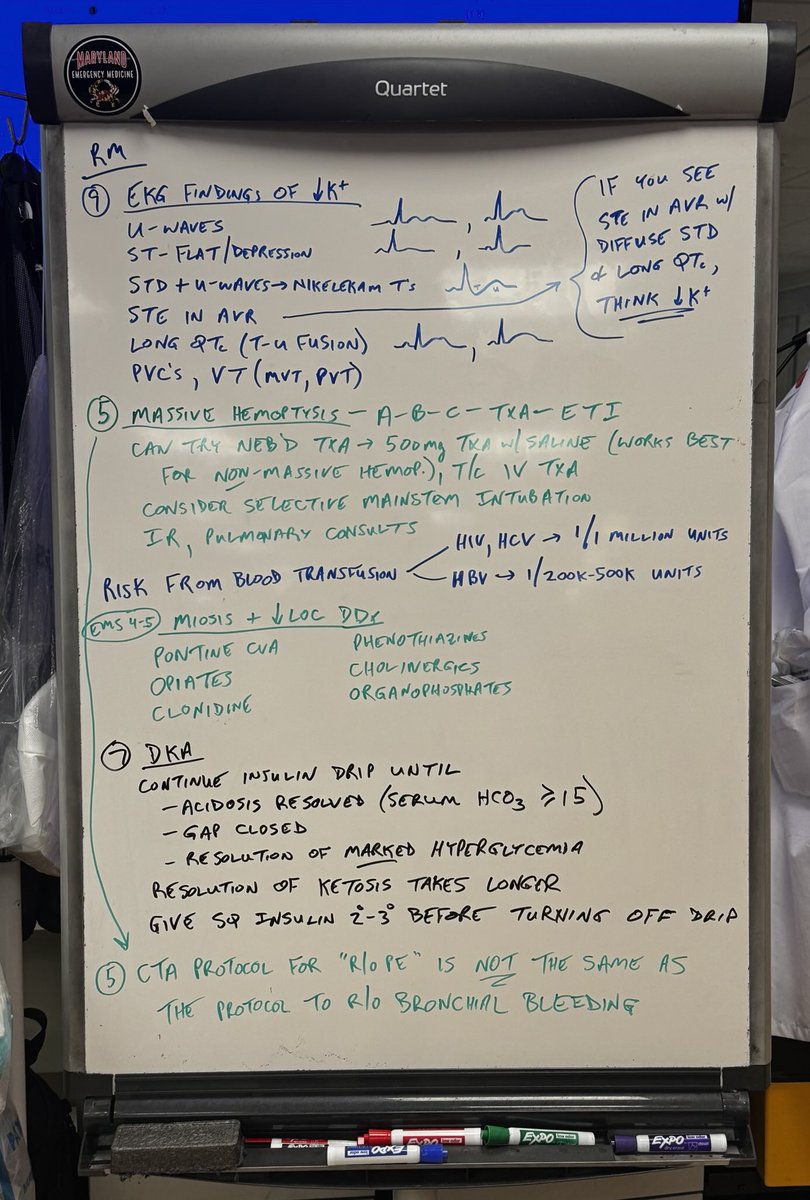 MARYLAND
EMERGENCY MEDICINE
Quartet
RM
9 EKG FINDINGS OF ↓K+
U-WAVES
ST-FLAT/DEPRESSION
STD + U-WAVES → NIKELEKAM T's
T U
STE IN AVR
LONG QTc (T-U FUSION)
PVC's, VT (MVT, PVT)
IF YOU SEE
STE IN AVR W/
DIFFUSE STD
& LONG QTc,
THINK ↓K+
5 MASSIVE HEMOPTYSIS - A-B-C-TXA-ETI
CAN TRY NEB'D TXA → 500mg TXA W/ SALINE (WORKS BEST
FOR NON-MASSIVE HEMOP.), T/C IV TXA
CONSIDER SELECTIVE MAINSTEM INTUBATION
IR, PULMONARY CONSULTS
RISK FROM BLOOD TRANSFUSION
HIV, HCV → 1/1 MILLION UNITS
HBV → 1/200K-500K UNITS
EMS 4-5 MIOSIS + ↓LOC DDx
PONTINE CVA
OPIATES
CLONIDINE
PHENOTHIAZINES
CHOLINERGICS
ORGANOPHOSPHATES
7 DKA
CONTINUE INSULIN DRIP UNTIL
- ACIDOSIS RESOLVED (SERUM HCO3 ≥15)
- GAP CLOSED
- RESOLUTION OF MARKED HYPERGLYCEMIA
RESOLUTION OF KETOSIS TAKES LONGER
GIVE SQ INSULIN 2°-3° BEFORE TURNING OFF DRIP
5 CTA PROTOCOL FOR "R/O PE" IS NOT THE SAME AS
THE PROTOCOL TO R/O BRONCHIAL BLEEDING
EXPO
EXPO
EXPO
EXPO